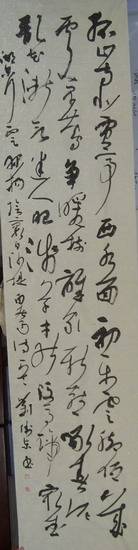 孤山寺北賈亭西水面初平雲腳低幾
處早鶯爭暖樹誰家新燕啄春泥
亂花漸欲迷人眼淺草才能沒馬蹄最愛
湖東行不足綠楊陰裏白沙堤白居易詩